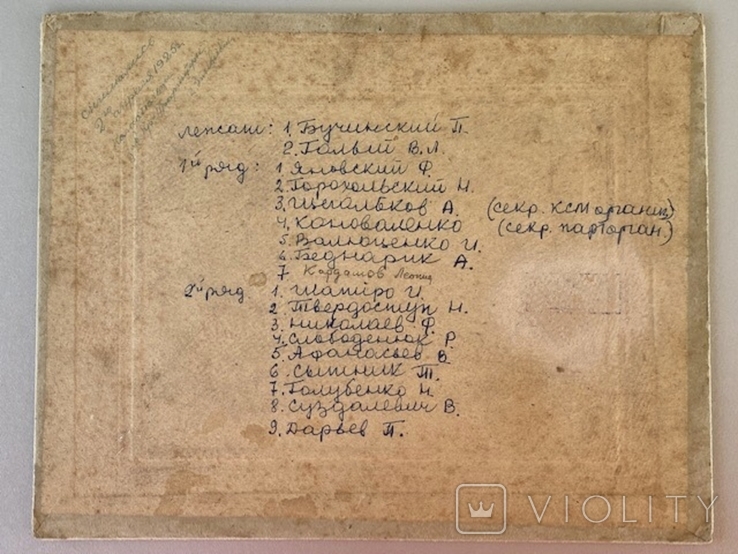 снимались
2го апреля 1925г.
лежат: 1. Бучинский П.
2. Голый В.Л.
1й ряд: 1 Яновский Ф.
2. Горохольский Н.
3. Цыгальков А. (секр. КСМ организ)
4. Коноваленко (секр. парторган.)
5. Валюценко И.
6. Беднарик А.
7 Кардашов Леонид
2й ряд. 1. Шапиро И.
2 Твердоступ Н.
3. Николаев Ф.
4. Слободенюк Р.
5. Афанасьев В
6. Сытник Т.
7. Голубенко Н.
8. Суздалевич В.
9. Дарьев П.
VIOLITY